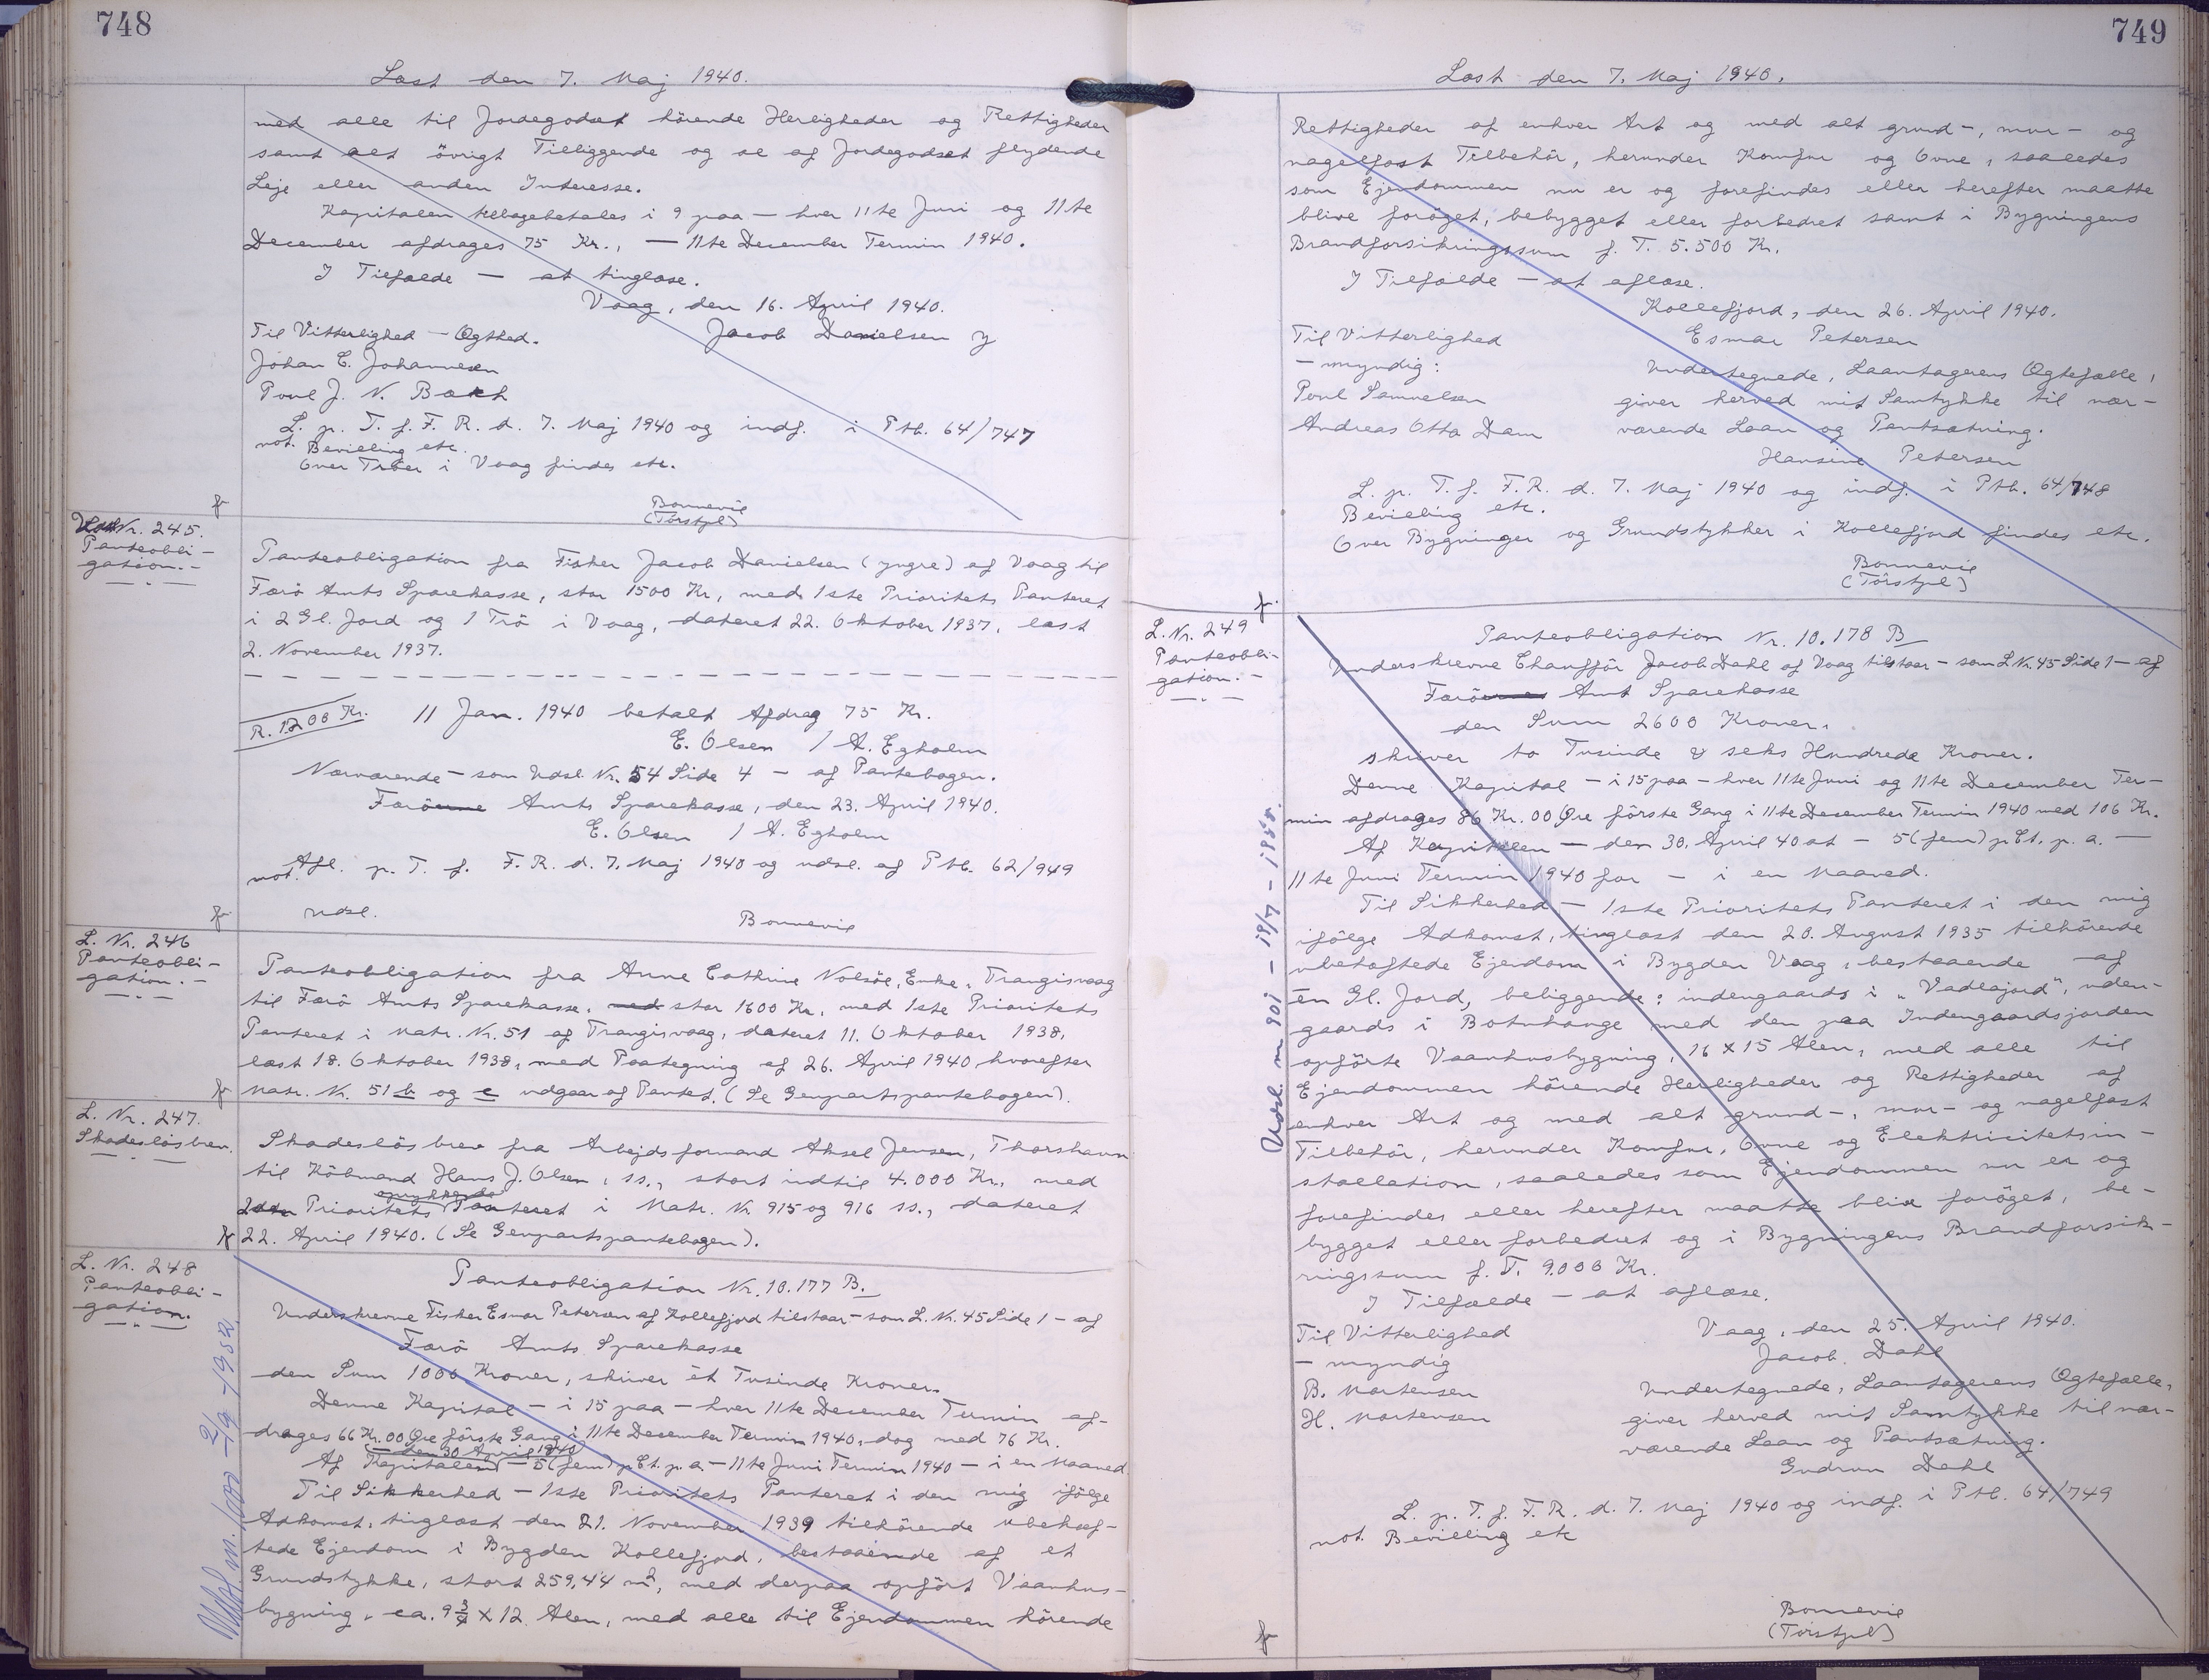 748
Læst den 7. Maj 1940.
med alle til Jordegodset hörende Herligheder og Rettigheder
samt alt övrigt Tilliggende og al af Jordegodset flydende
Leje eller anden Interesse.
Kapitalen tilbagebetales i 9 paa — hver 11te Juni og 11te
December afdrages 75 Kr., — 11te December Termin 1940.
I Tilfælde — at tinglæse.
Vaag, den 16. April 1940.
Til Vitterlighed — Ægthed. Jacob Danielsen y
Johan E. Johannesen
Poul J. N. Bach
L. p. T. f. F. R. d. 7. Maj 1940 og indf. i Ptb. 64/747
not. Bevilling etc.
Over Tröer i Vaag findes etc.
Bonnevie
(Torstpl)
L. Nr. 245.
Panteobli-
gation.-
Panteobligation fra Fisker Jacob Danielsen (yngre) af Vaag til
Færö Amts Sparekasse, stor 1500 Kr, med 1ste Prioritets Panteret
i 2 Gl. Jord og 1 Trö i Vaag, dateret 22. Oktober 1937, læst
2. November 1937.
R. 1200 Kr. 11 Jan. 1940 betalt Afdrag 75 Kr.
E. Olsen / A. Egholm
Nærværende — som Udsl. Nr. 54 Side 4 — af Pantebogen.
Færöerne Amts Sparekasse, den 23. April 1940.
E. Olsen / A. Egholm
not. Afl. p. T. f. F. R. d. 7. Maj 1940 og udsl. af Ptb. 62/949
udsl. Bonnevie
L. Nr. 246
Panteobli-
gation.-
Panteobligation fra Anne Cathrine Nolsöe, Enke, Trangisvaag
til Færö Amts Sparekasse, med stor 1600 Kr, med 1ste Prioritets
Panteret i Matr. Nr. 51 af Trangisvaag, dateret 11. Oktober 1938,
læst 18. Oktober 1938, med Paategning af 26. April 1940 hvorefter
Matr. Nr. 51 b og c udgaar af Pantet. (Se Genpartspantebogen).
L. Nr. 247.
Skadeslösbrev.
Skadeslösbrev fra Arbejdsformand Aksel Jensen, Thorshavn
til Köbmand Hans J. Olsen, ss., stort indtil 4.000 Kr, med
oprykkende
2den Prioritets Panteret i Matr. Nr. 915 og 916 ss., dateret
22. April 1940. (Se Genpartspantebogen).
L. Nr. 248
Panteobli-
gation.
Panteobligation Nr. 10.177 B.
Underskrevne Fisker Esmar Petersen af Kollefjord tilstaar — som L. Nr. 45 Side 1 — af
Færö Amts Sparekasse
den Sum 1000 Kroner, skriver èt Tusinde Kroner.
Denne Kapital — i 15 paa — hver 11te December Termin af-
drages 66 Kr. 00 Øre förste Gang i 11te December Termin 1940, dog med 76 Kr.
(— den 30 April 1940)
Af Kapitalen — 5 (fem) p Ct. p. a. — 11te Juni Termin 1940 — i en Maaned.
Til Sikkerhed — 1ste Prioritets Panteret i den mig ifölge
Adkomst, tinglæst den 21. November 1939 tilhörende ubehæf-
tede Ejendom i Bygden Kollefjord, bestaaende af et
Grundstykke, stort 259,44 m², med derpaa opfört Vaanhus-
bygning, ca. 9 3/4 x 12 Alen, med alle til Ejendommen hörende
749
Læst den 7. Maj 1940.
Rettigheder af enhver Art og med alt grund-, mur- og
nagelfast Tilbehör, herunder Komfur og Ovne, saaledes
som Ejendommen nu er og forefindes eller herefter maatte
blive foröget, bebygget eller forbedret samt i Bygningens
Brandforsikringssum f. T. 5.500 Kr.
I Tilfælde — at aflæse.
Kollefjord, den 26. April 1940.
Til Vitterlighed Esmar Petersen
— myndig: Undertegnede, Laantagerens Ægtefælle,
Poul Samuelsen giver herved mit Samtykke til nær-
Andreas Otto Dam værende Laan og Pantsætning.
Hansine Petersen
L. p. T. f. F. R. d. 7. Maj 1940 og indf. i Ptb. 64/748
Bevilling etc.
Over Bygninger og Grundstykker i Kollefjord findes etc.
Bonnevie
(Torstpl)
L. Nr. 249
Panteobli-
gation.-
Udsl. m 901 — 19/7 — 1955.
Panteobligation Nr. 10.178 B
Underskrevne Chafför Jacob Dahl af Vaag tilstaar — som L Nr. 45 Side 1 — af
Færöernes Amt Sparekasse
den Sum 2600 Kroner,
skriver to Tusinde & seks Hundrede Kroner.
Denne Kapital — i 15 paa — hver 11te Juni og 11te December Ter-
min afdrages 86 Kr. 00 Øre förste Gang i 11te December Termin 1940 med 106 Kr.
Af Kapitalen — den 30. April 40 at — 5 (fem) p Ct. p. a. —
11te Juni Termin 1940 for — i en Maaned.
Til Sikkerhed — 1ste Prioritets Panteret i den mig
ifölge Adkomst, tinglæst den 20. August 1935 tilhörende
ubehæftede Ejendom i Bygden Vaag, bestaaende af
èn Gl. Jord, beliggende: indengaards i "Vadlajord", uden-
gaards i Botnhauge med den paa Indengaardsjorden
opförte Vaanhusbygning, 16 x 15 Alen, med alle til
Ejendommen hörende Herligheder og Rettigheder af
enhver Art og med alt grund-, mur- og nagelfast
Tilbehör, herunder Komfur, Ovne og Elektricitetsin-
stallation, saaledes som Ejendommen nu er og
forefindes eller herefter maatte blive foröget, be-
bygget eller forbedret og i Bygningens Brandforsik-
ringssum f. T. 9.000 Kr.
I Tilfælde — at aflæse.
Til Vitterlighed Vaag, den 25. April 1940.
— myndig Jacob Dahl
B. Mortensen Undertegnede, Laantagerens Ægtefælle,
H. Mortensen giver herved mit Samtykke til nær-
værende Laan og Pantsætning.
Gudrun Dahl
L. p. T. f. F. R. d. 7. Maj 1940 og indf. i Ptb. 64/749
not. Bevilling etc
Bonnevie
(Torstpl)